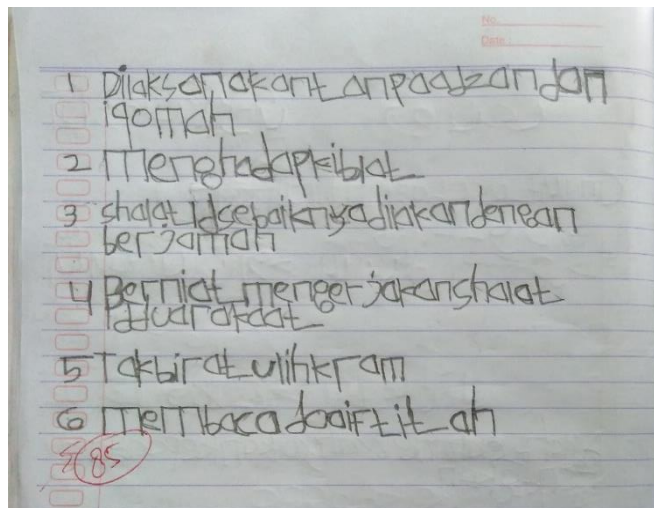 No.
Date :
1 Dilaksanakant anpaadzandan
iqomah
2 menghadapkiblat
3 shalat Idsebaiknyadilakandengan
berjamah
4 Berniat mengerjakanshalat
Idduarakaat
5 Takbirat ulihkram
6 membaca doaiftit ah
85